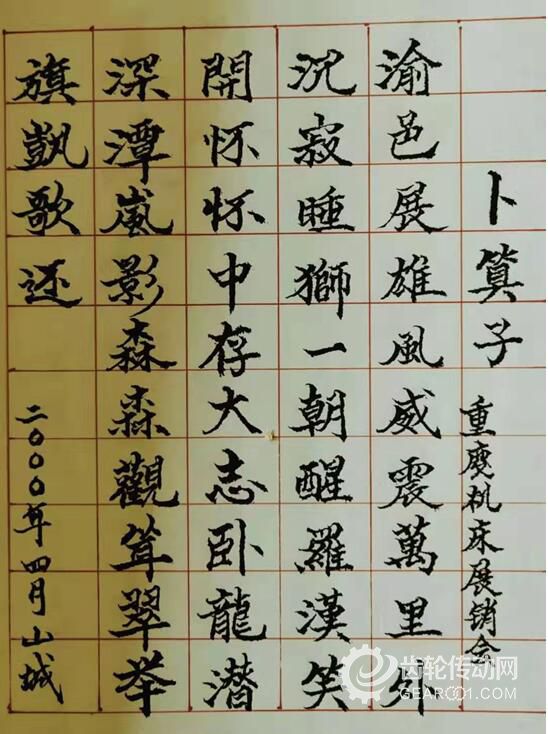 卜算子 重庆机床展销会
渝邑展雄風威震萬里外
沉寂睡獅一朝醒羅漢笑
開怀怀中存大志卧龍潜
深潭嵐影森森觀耸翠举
旗凱歌还
二000年四月山城
齿轮传动网
GEAR001.COM